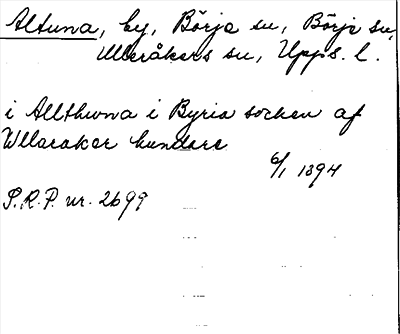 Altuna, by, Börje sn, Börje sn,
Ulleråkers sn, Upps. l.
i Allthwna i Byria socken af
Wllarakar hundare
6/1 1394
S.R.P. nr. 2699